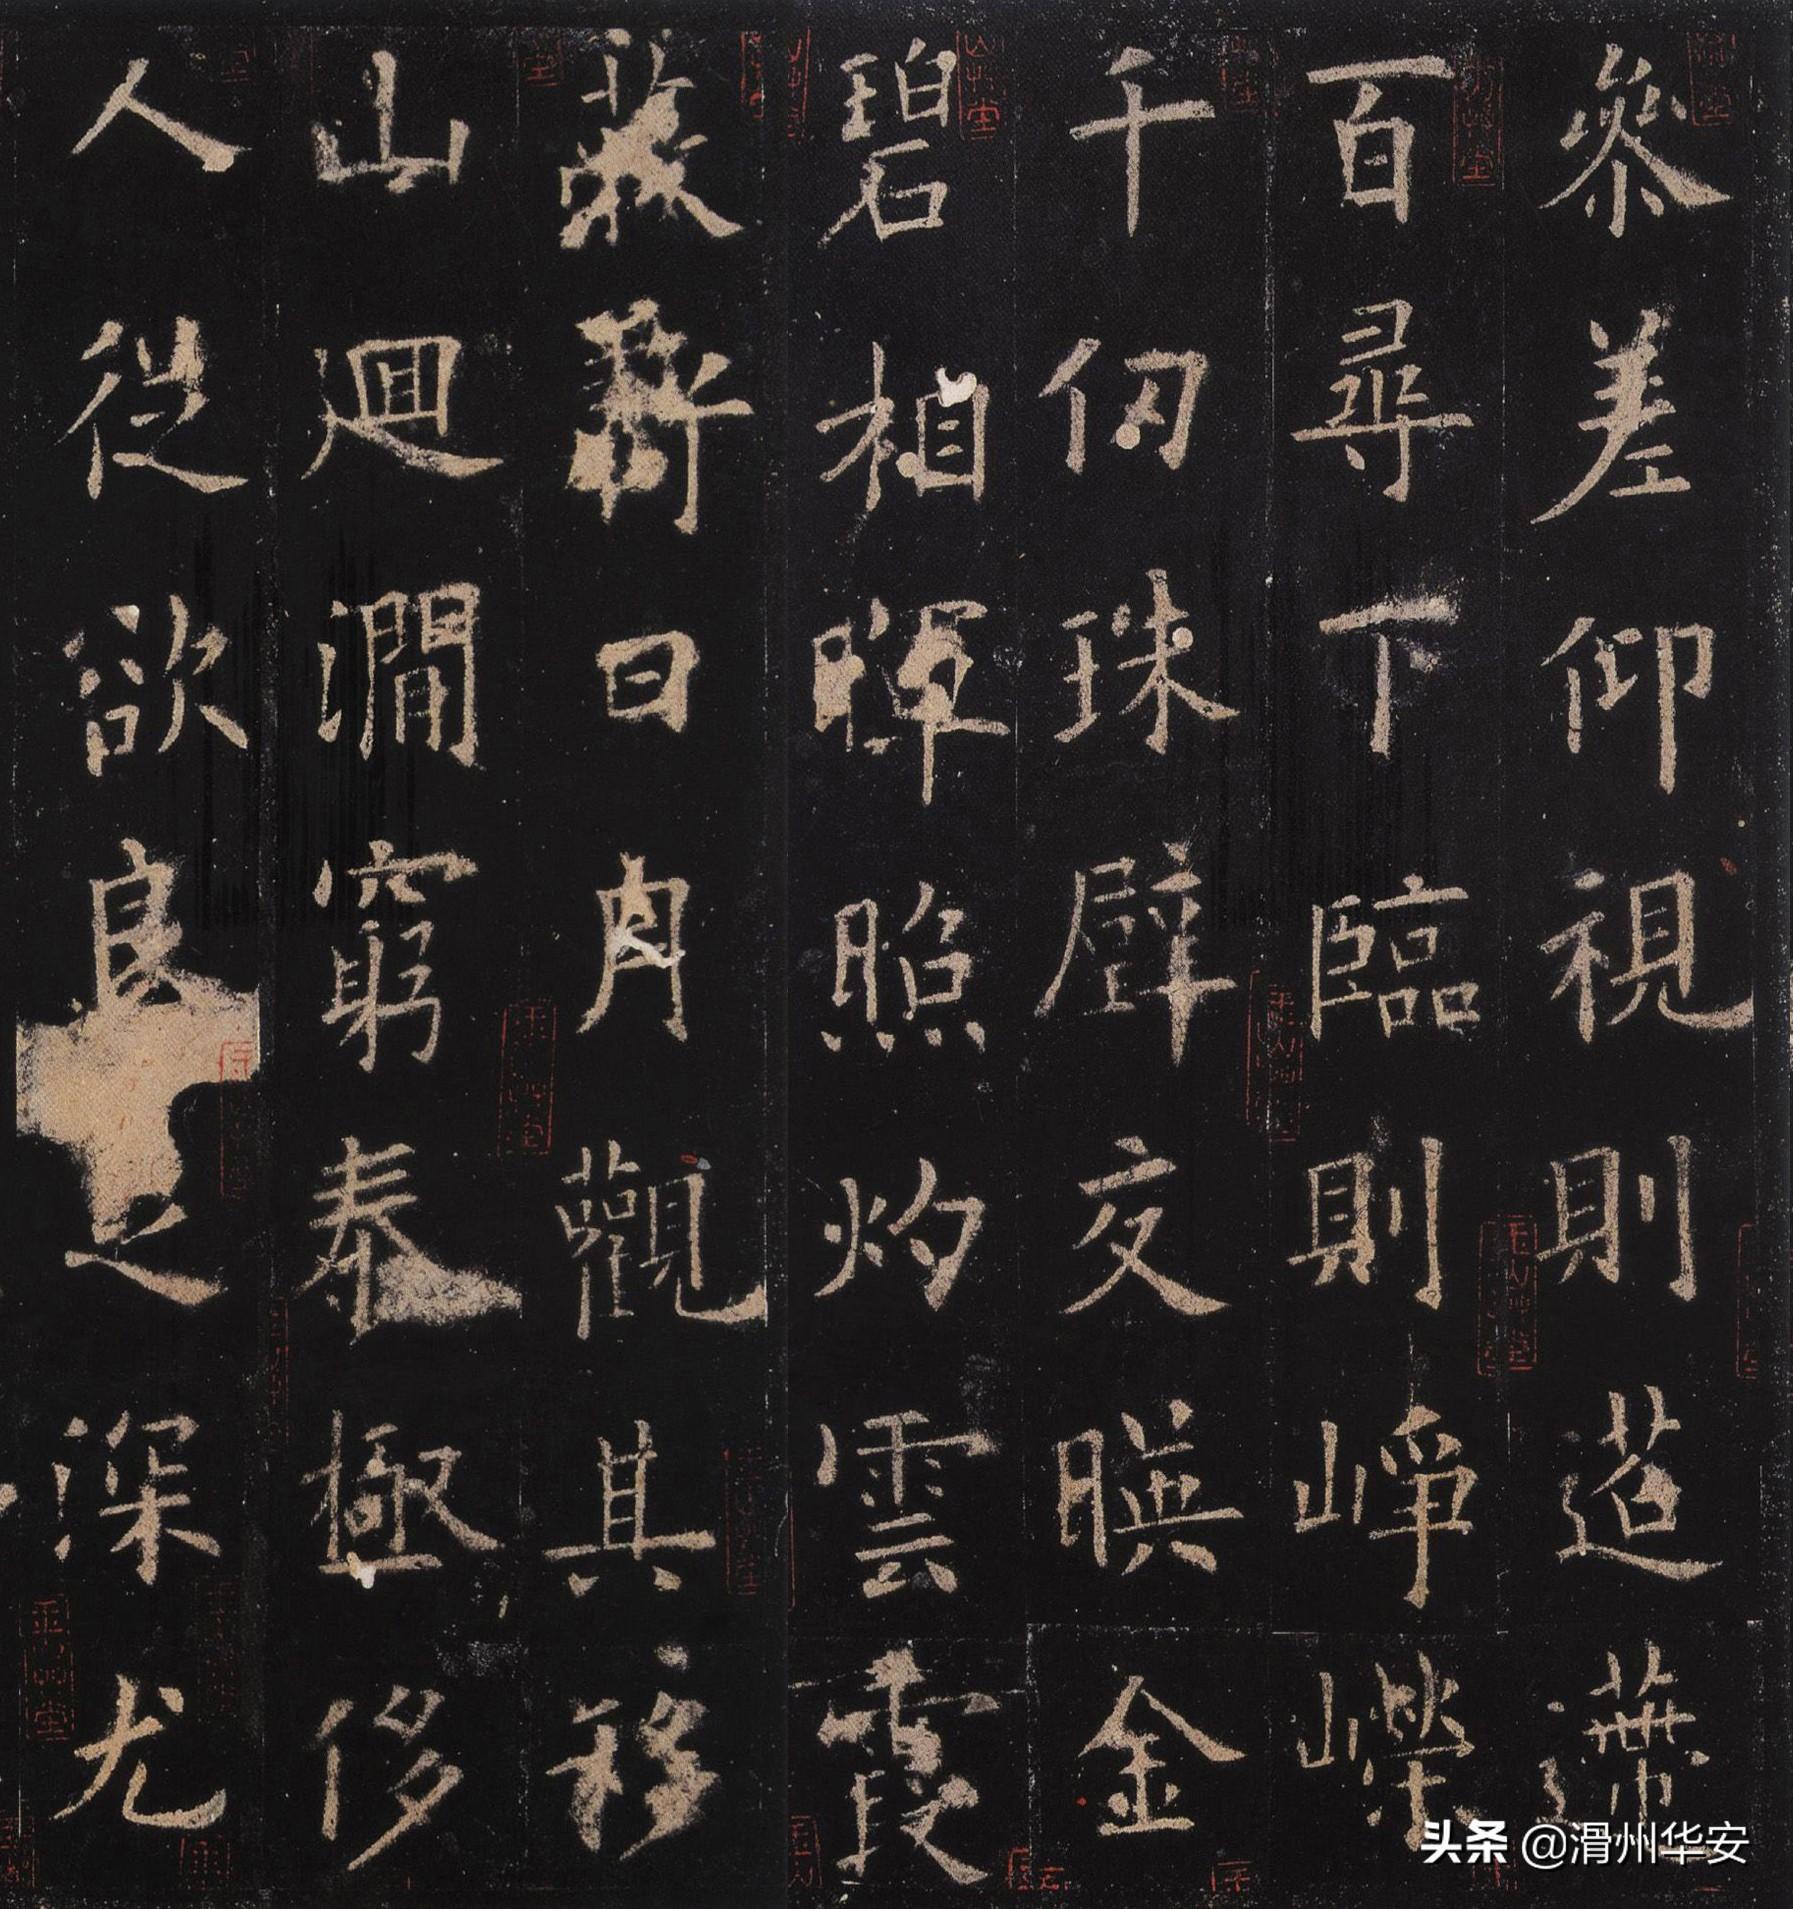 參差仰視則迢遰
百尋下臨則崢嶸
千仞珠壁交暎金
碧相暉照灼雲霞
蔽虧日月觀其移
山迴澗窮泰極侈
人從欲良足深尤
头条 @滑州华安